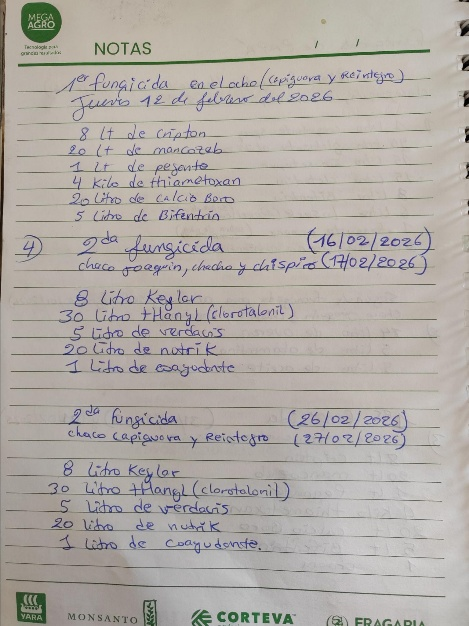 MEGA
AGRO
Tecnología para
grandes resultados
NOTAS
/ /
1er fungicida en el ocho (capiguara y Reintegro)
Jueves 12 de febrero del 2026
8 Lt de cripton
20 Lt de mancozeb
1 Lt de pegente
4 Kilo de thiametoxan
20 Litro de calcio Boro
5 Litro de Bifentrin
4) 2da fungicida (16/02/2026)
chaco Joaquin, chacho y chispiro (17/02/2026)
8 Litro Keylor
30 Litro tHanyl (clorotalonil)
5 Litro de verdavis
20 Litro de nutrik
1 Litro de coayudante
2da fungicida (26/02/2026)
chaco capiguara y Reintegro (27/02/2026)
8 Litro Keylor
30 Litro tHanyl (clorotalonil)
5 Litro de verdavis
20 Litro de nutrik
1 Litro de coayudante.
YARA MONSANTO CORTEVA FRAGARIA